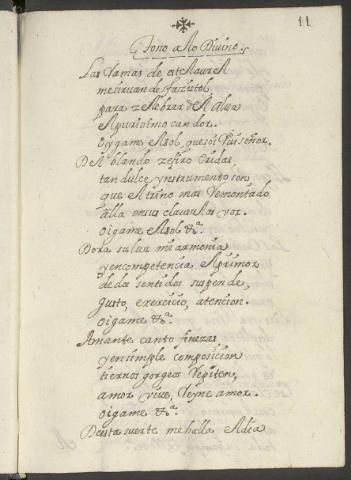 11
Tono a lo Divino.
Las Ramas de este laurel
me siruan de fazistol
para zelebrar del alua
el purissimo candor.
Oygame el sol, que soi Ruiseñor.
Del blando zefiro en las
tan dulce ynstrumento son
que el trino mas Remontado
alla en sus clausulas voz.
oigame el sol &ª.
Dora su luz mi armonia
y en competencia el primor
de da sentidos suspende,
gusto, exercicio, atencion.
oigame &ª.
Amante canto finezas
y en simple composicion
tiernos gorgeos Repiten,
amor viue, Reyne amor.
oigame &ª.
De esta suerte me halla el dia